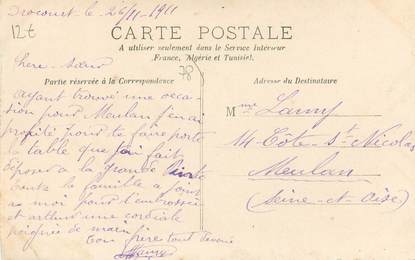 Drocourt le 26/11-1911
12t
CARTE POSTALE
A utiliser seulement dans le Service Intérieur
(France, Algérie et Tunisie).
78
Chere Sœur
Partie réservée à la Correspondance
Adresse du Destinataire
ayant trouvé une occa
sion pour Meulan j'en ai
profité pour te faire porte
la table que j'ai fait
déposer a la grande
toute la famille a joint
a moi pour t'embrasser
et arthur une cordiale
poignée de main
Ton frère tout dévoué
Lamy
Mme Lamy
14 Côte St Nicolas
Meulan
(Seine-et-Oise)